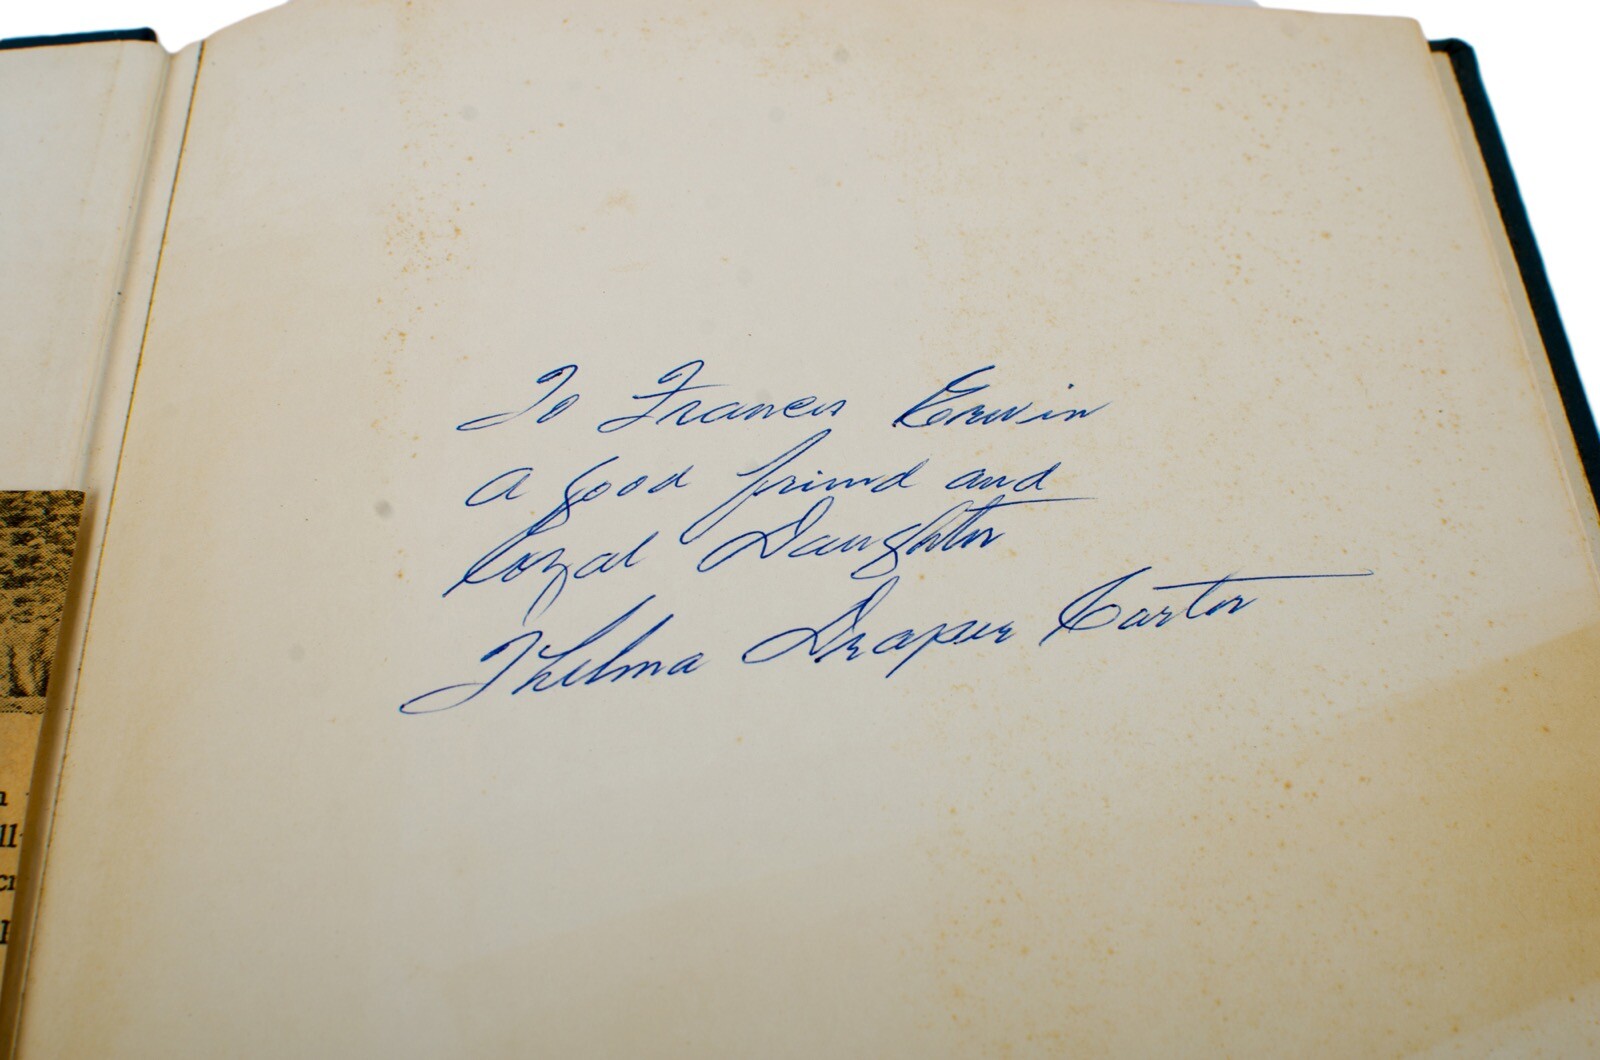 To Frances Erwin
a good friend and
loyal Daughter
Thelma Draper Carter
ll
cr